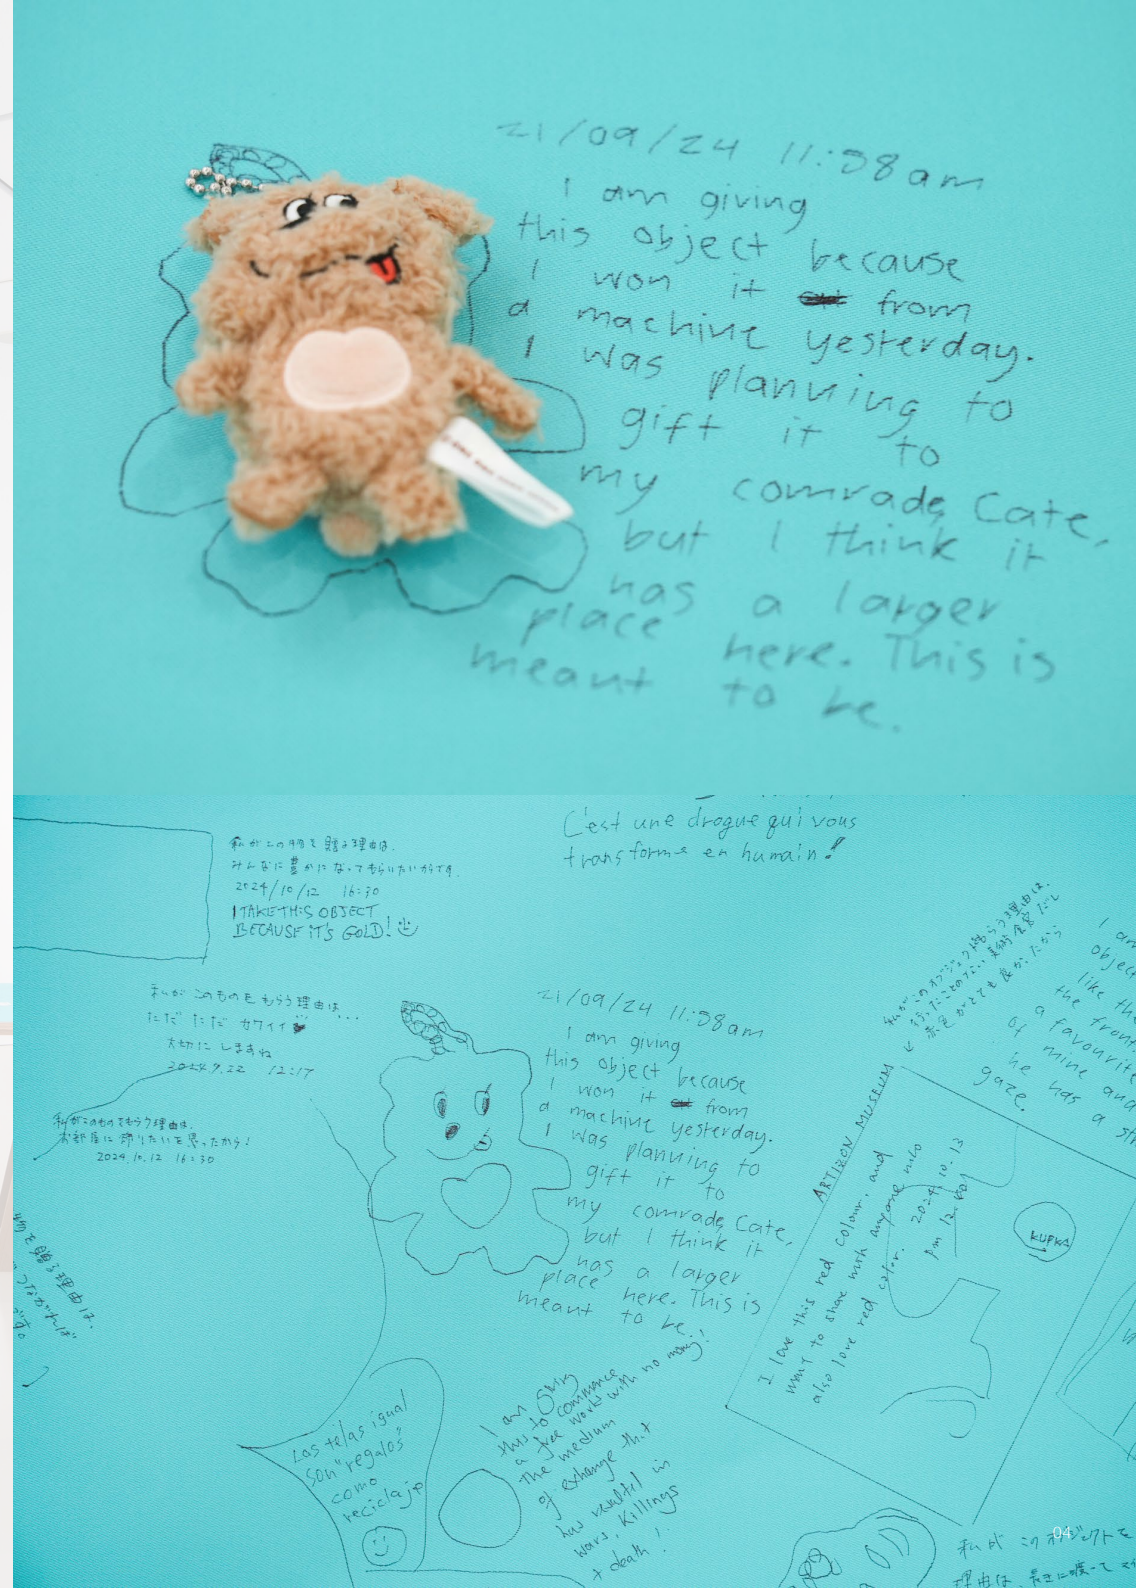 21/09/24 11:58am
I am giving
this object because
I won it from
a machine yesterday.
I was planning to
gift it to
my comrade, Cate,
but I think it
has a larger
place here. This is
meant to be.
C'est une drogue qui vous
transforme en humain!
私がこの物を贈る理由は、
みんなに豊かになってもらいたいからです。
2024/10/12 16:30
I TAKE THIS OBJECT
BECAUSE IT'S GOLD!
私が このものを もらう理由は、...
ただ ただ カワイイ
大切に しますね
2024.9.22 12:17
私がこのものをもらう理由は、
お部屋に飾りたいと思ったから!
2024.10.12 16:30
物を贈る理由は、
21/09/24 11:58am
I am giving
this object because
I won it from
a machine yesterday.
I was planning to
gift it to
my comrade, Cate,
but I think it
has a larger
place here. This is
meant to be.
私がこのオブジェクトをもらう理由は、
行ったことのない美術館だし
赤色がとても良かったから
I am
object
like the
the front
a favourite
of mine and
he has a
gaze.
ARTIZON MUSEUM
I love this red colour, and
want to share with anyone who
also love red color.
2024.10.13
pm 12:
KUPKA
Las telas igual
son "regalos"
como
reciclaje
I am giving
this to commence
a free world with no money!
The medium
of exchange that
has resulted in
wars, killings
+ death!
私が このオブジェクトを
理由は、
04